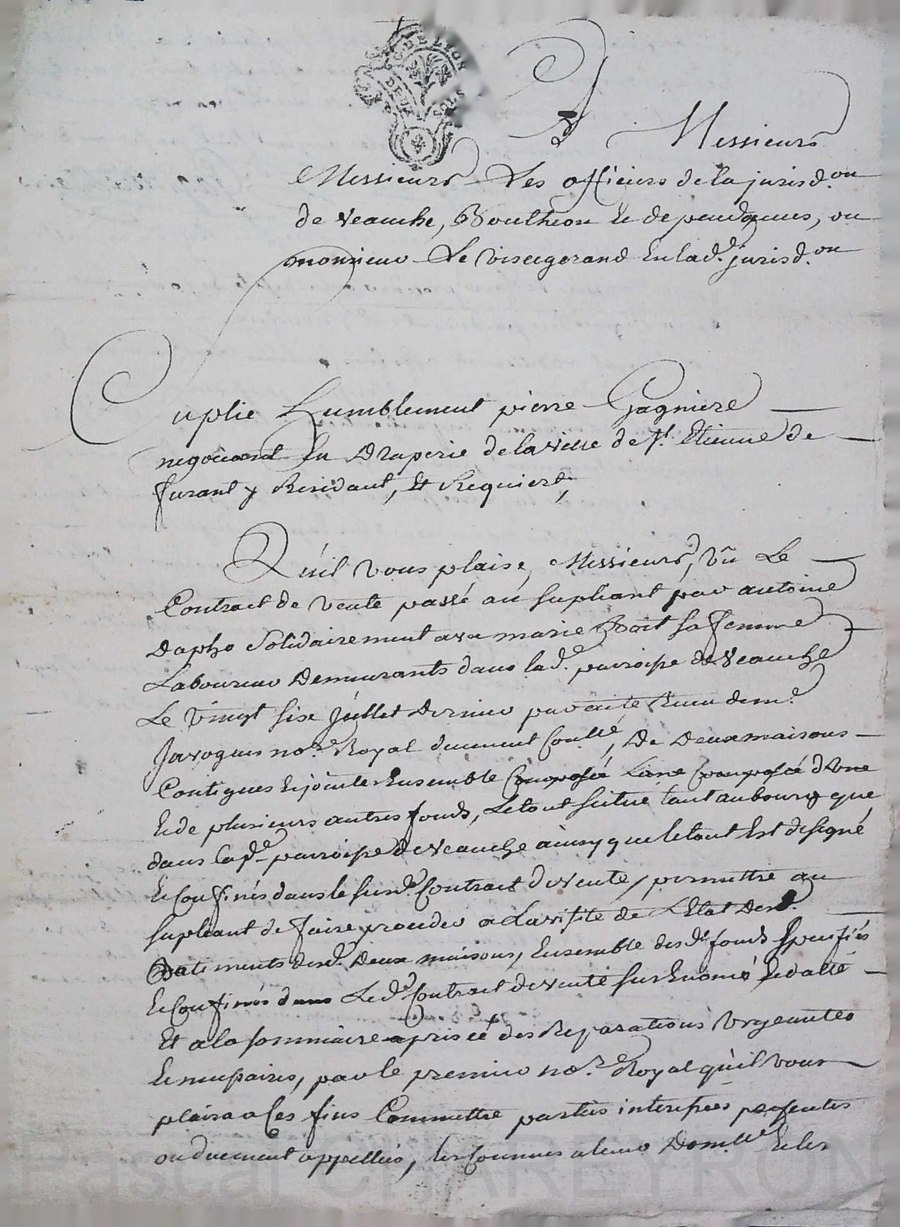 G. DE LYON
DEUX SOLS
A Messieurs
Messieurs Les officiers de la jurisd.on
de veauche, Bouthéon et dependances, ou
monsieur Le visegerand En lad.e jurisd.on
Suplie humblement pierre Gagniere
negotiant En Draperie de la ville de St. Etienne de
furant y Residant, Et Requiert,
Qu'il vous plaise, Messieurs, vû Le
Contract de vente passé au supliant par antoine
Dapho Solidairement avec marie sa femme
Laboureur Demeurants dans lad.e parroisse de veauche
Le vingt six juillet Dernier par acte Receu de m.e
Javogues no.re Royal duement Conllé, De Deux maisons
Contigues Et jointes Ensemble Composée L'une Composée d'Une
Et de plusieurs autres fonds, Le tout situé tant au bourg que
dans lad.e parroisse de veauche ainsy que le tout Est designé
Et Confinés dans le susd. Contract de vente, permettre au
supliant de faire proceder a La visite de L'Etat Des
Batiments desd. Deux maisons, Ensemble desd. fonds Speciffiés
Et Confinés dans Led. Contract de vente sus Enoncé Et datté
Et a la sommaire aprisée des Reparations Urgeantes
Et necessaires, par le premier no.re Royal qu'il vous
plaira a Ces fins Commettre parties interessées presentes
ou duement appellées, les Connues a leur Domlle Et les
Pascal CHAREYRON